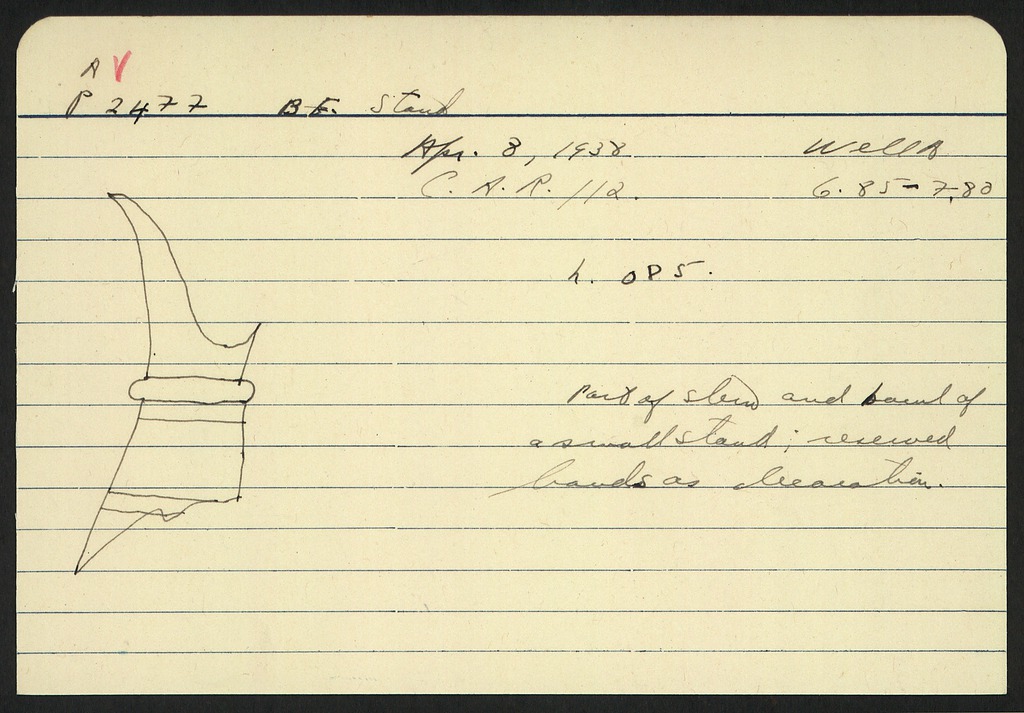 A V
P 2477 B.F. Stand
Apr. 8, 1938 Well A
C.A.R. 112. 6.85-7.80
h. 0P5.
Part of stem and bowl of
a small stand; reserved
bands as decoration.